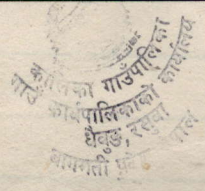 कालिका गाउँपालिका
गाउँ कार्यपालिकाको कार्यालय
धैवुङ, रसुवा
बागमती प्रदेश